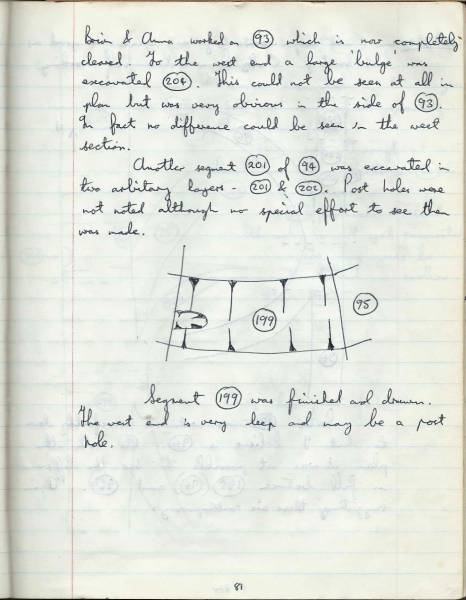 Brian & Anna worked on 93 which is now completely
cleared. To the west end a large 'bulge' was
excavated 204. This could not be seen at all in
plan but was very obvious in the side of 93.
In fact no difference could be seen in the west
section.
Another segment 201 of 94 was excavated in
two arbitary layers - 201 & 202. Post holes were
not noted although no special effort to see them
was made.
199
95
Segment 199 was finished and drawn.
The west end is very deep and may be a post
hole.
81